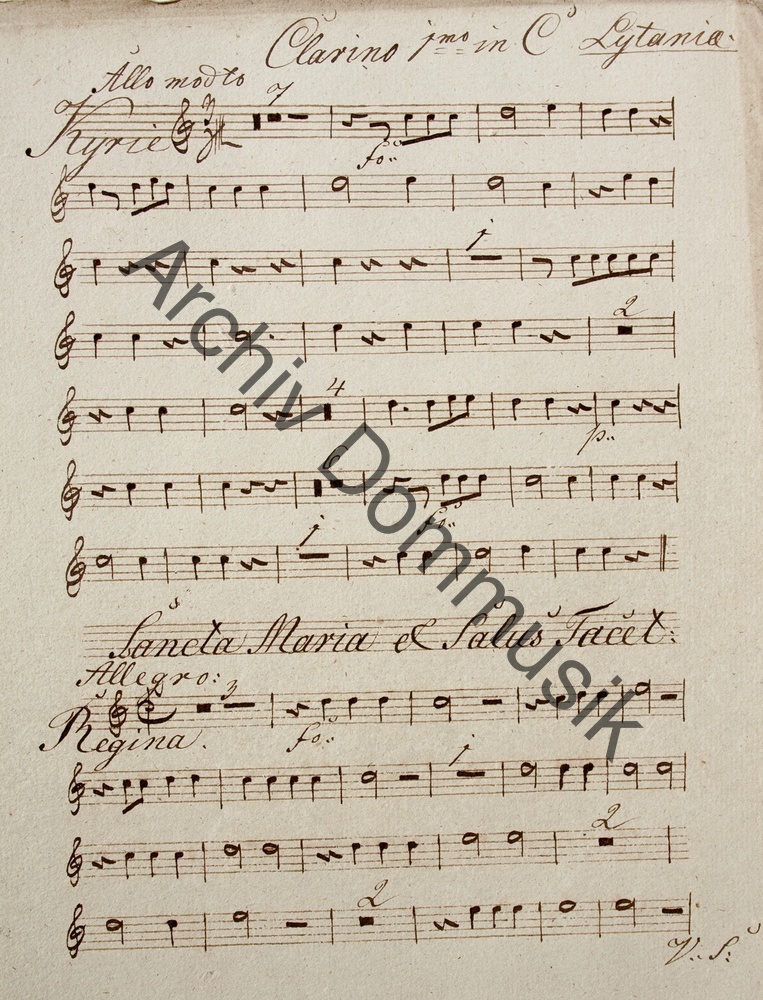 Clarino 1mo in C Lytaniæ.
Allo modto
7
Kyrie
fo:
1
2
4
p:
6
fo:
1
Sancta Maria et Salus Tacet:
Allegro:
3
Regina.
fo:
1
2
2
V: S:
Archiv Dommusik